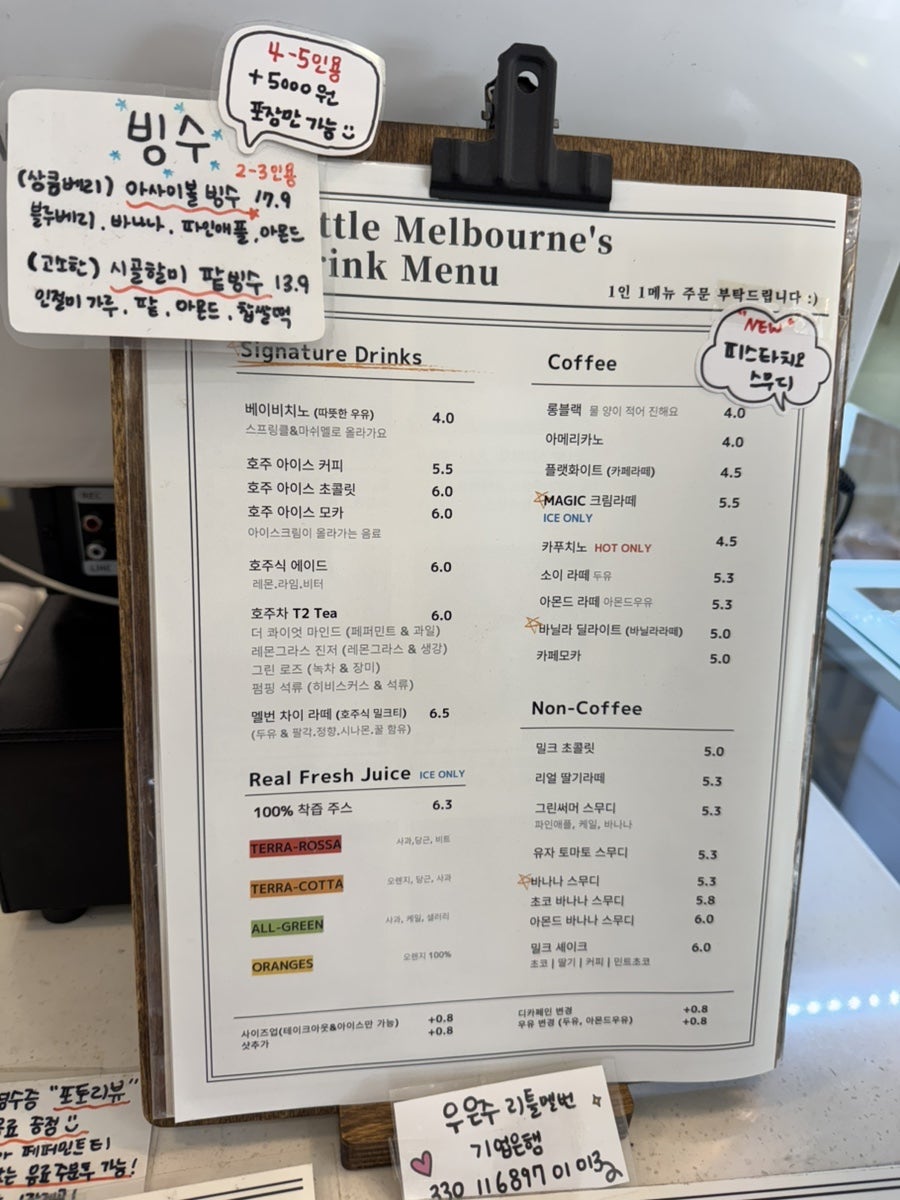 4-5인용
+5000원
포장만 가능
빙수
2-3인용
(상큼베리) 아사이볼 빙수 17.9
블루베리, 바나나, 파인애플, 아몬드
(고소한) 시골할미 팥빙수 13.9
인절미 가루, 팥, 아몬드, 찹쌀떡
ttle Melbourne's
rink Menu
1인 1메뉴 주문 부탁드립니다 :)
"NEW"
피스타치오
스무디
Signature Drinks
베이비치노 (따뜻한 우유) 4.0
스프링클&마쉬멜로 올라가요
호주 아이스 커피 5.5
호주 아이스 초콜릿 6.0
호주 아이스 모카 6.0
아이스크림이 올라가는 음료
호주식 에이드 6.0
레몬.라임.비터
호주차 T2 Tea 6.0
더 콰이엇 마인드 (페퍼민트 & 과일)
레몬그라스 진저 (레몬그라스 & 생강)
그린 로즈 (녹차 & 장미)
펌핑 석류 (히비스커스 & 석류)
멜번 차이 라떼 (호주식 밀크티) 6.5
(두유 & 팔각.정향.시나몬.꿀 함유)
Real Fresh Juice ICE ONLY
100% 착즙 주스 6.3
TERRA-ROSSA 사과,당근, 비트
TERRA-COTTA 오렌지, 당근, 사과
ALL-GREEN 사과, 케일, 샐러리
ORANGES 오렌지 100%
Coffee
롱블랙 물 양이 적어 진해요 4.0
아메리카노 4.0
플랫화이트 (카페라떼) 4.5
MAGIC 크림라떼 5.5
ICE ONLY
카푸치노 HOT ONLY 4.5
소이 라떼 두유 5.3
아몬드 라떼 아몬드우유 5.3
바닐라 딜라이트 (바닐라라떼) 5.0
카페모카 5.0
Non-Coffee
밀크 초콜릿 5.0
리얼 딸기라떼 5.3
그린써머 스무디 5.3
파인애플, 케일, 바나나
유자 토마토 스무디 5.3
바나나 스무디 5.3
초코 바나나 스무디 5.8
아몬드 바나나 스무디 6.0
밀크 셰이크 6.0
초코 | 딸기 | 커피 | 민트초코
사이즈업(테이크아웃&아이스만 가능) +0.8
샷추가 +0.8
디카페인 변경 +0.8
우유 변경 (두유, 아몬드우유) +0.8
REC
LINE
영수증 "포토리뷰"
음료 증정
페퍼민트티
음료주문두 가능!
우은주 리틀멜번
기업은행
330 116897 01 013